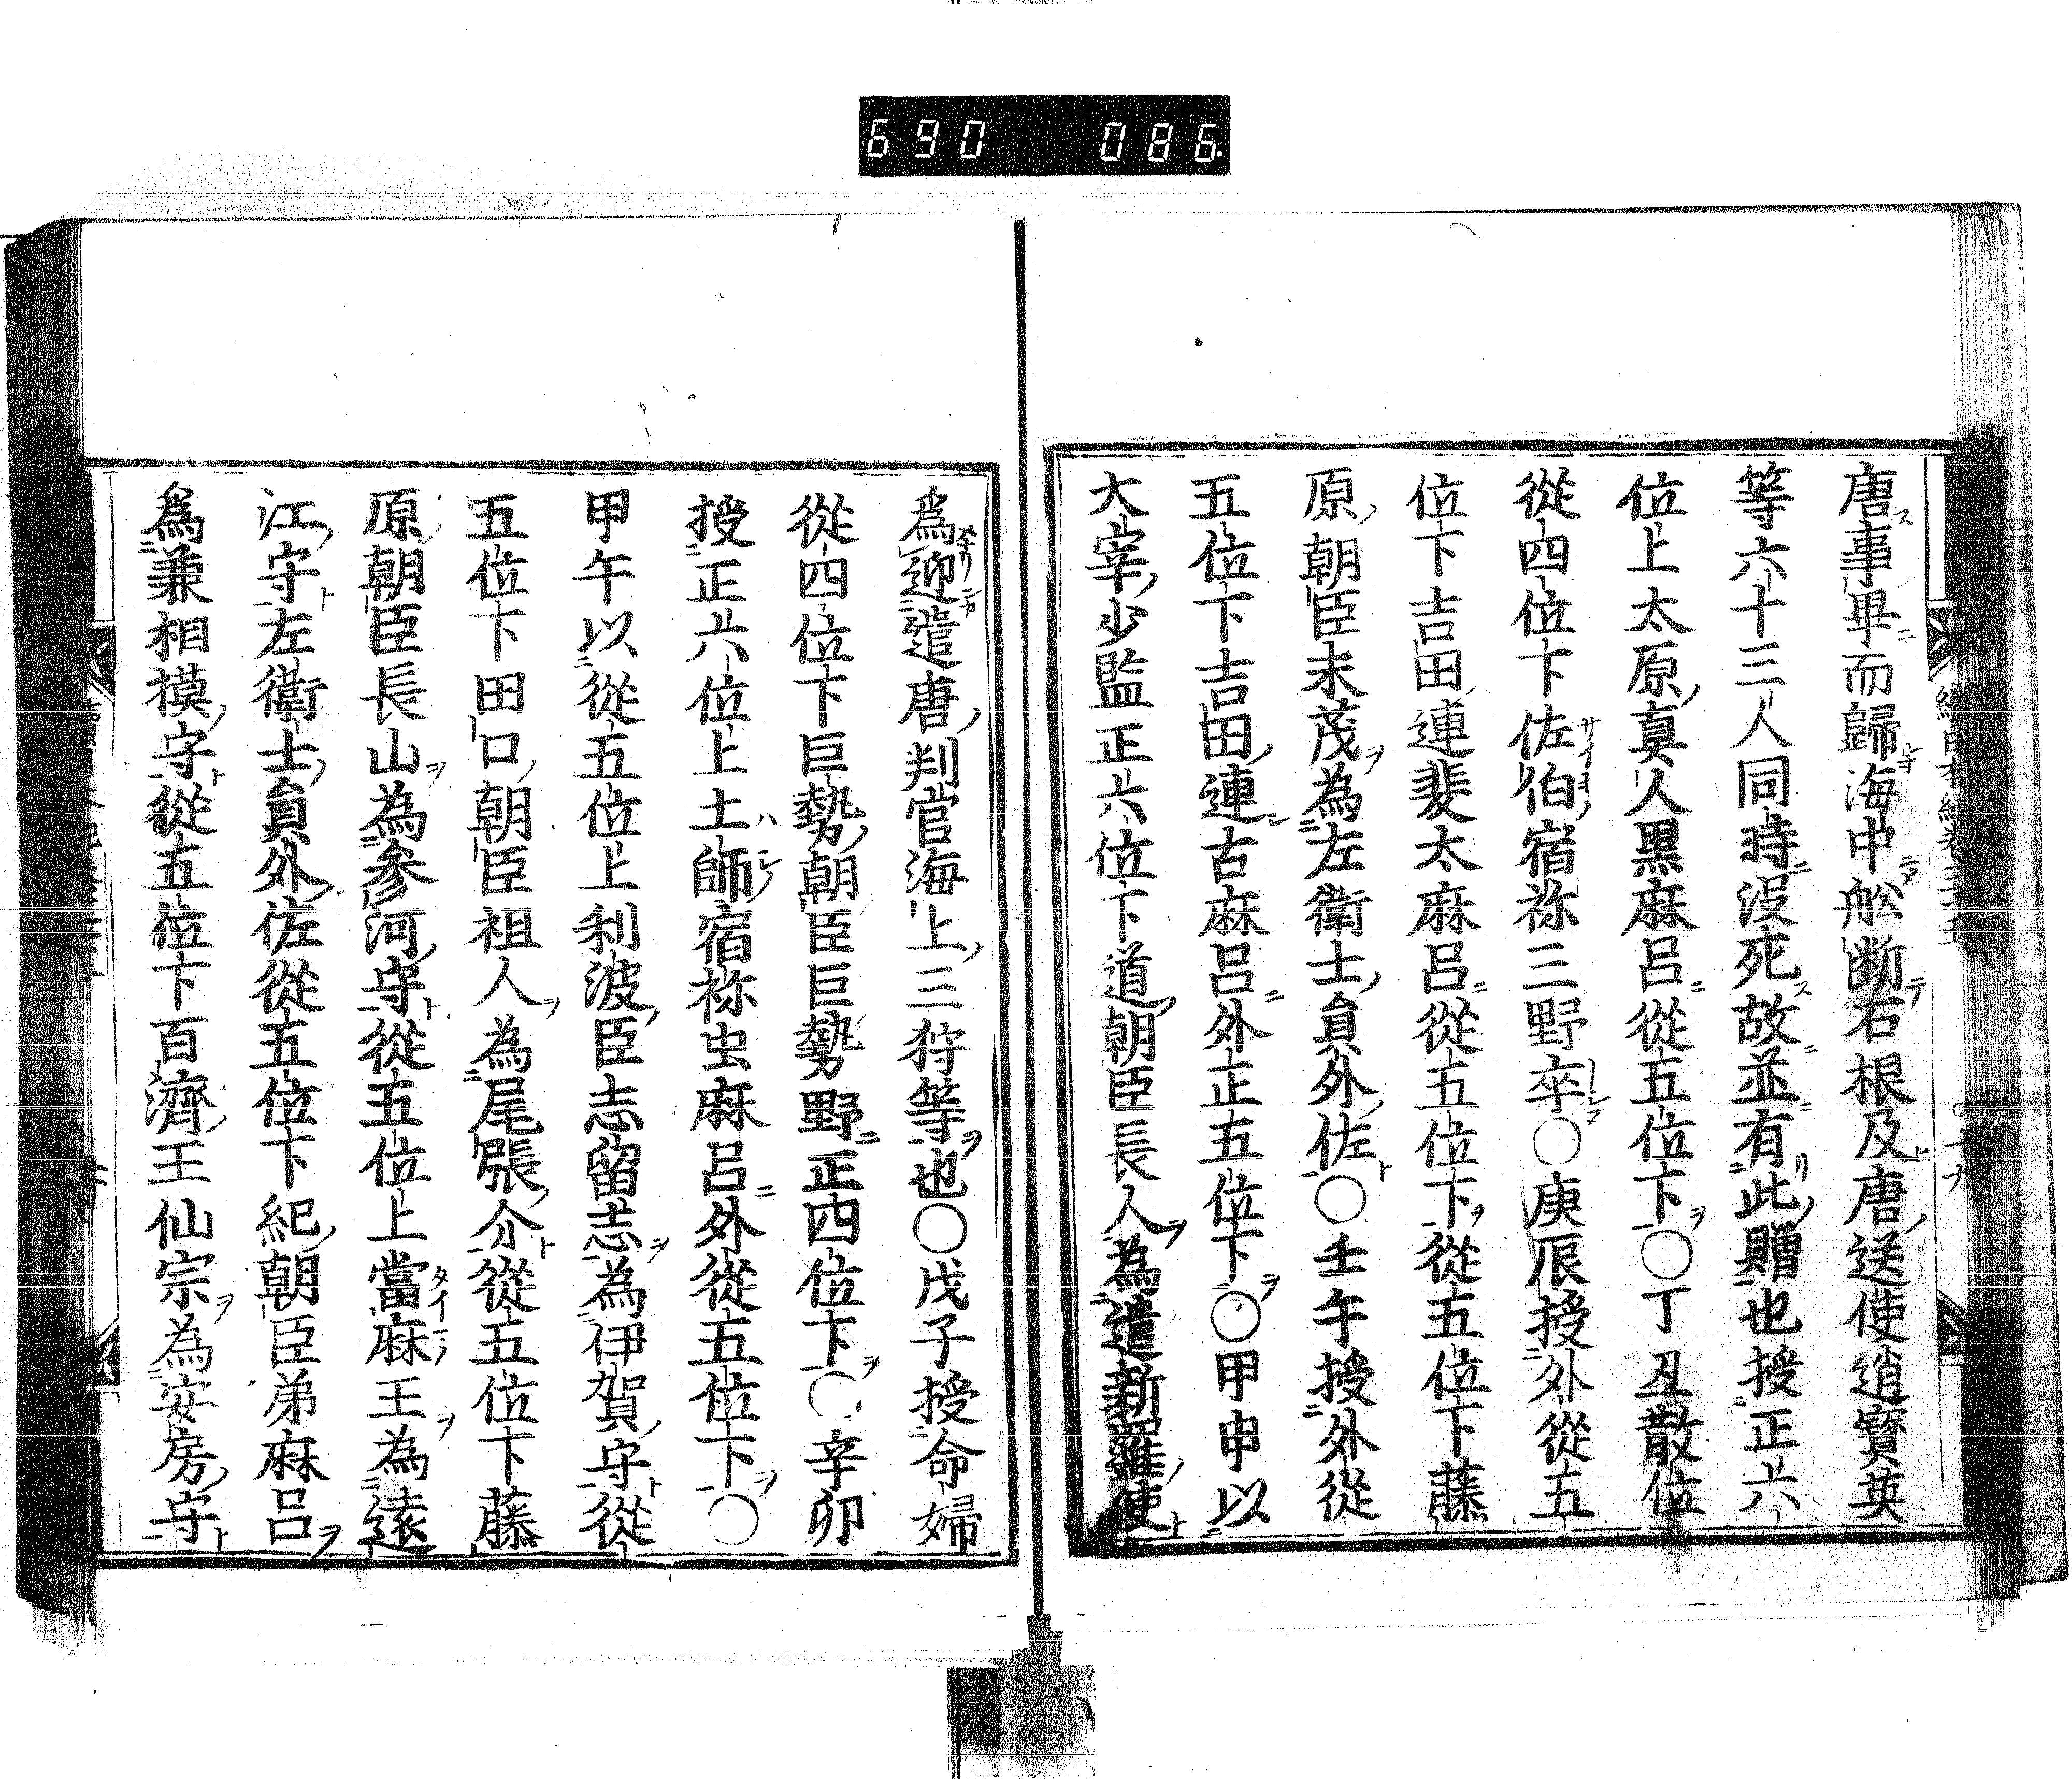 690 086
唐事畢而歸海中舩断石根及唐送使逍寳英
等六十三人同時没死故並有此贈也授正六
位上太原真人黒麻呂從五位下○丁丑散位
從四位下佐伯宿祢三野卒○庚辰授外從五
位下吉田連斐太麻呂從五位下從五位下藤
原朝臣末茂為左衛士員外佐○壬午授外從
五位下吉田連古麻呂外正五位下○甲申以
大宰少監正六位下道朝臣長人為遣新羅使
爲迎遣唐判官海上三狩等也○戊子授命婦
從四位下巨勢朝臣巨勢野正四位下○辛卯
授正六位上土師宿祢虫麻呂外從五位下○
甲午以從五位上利波臣志留志為伊賀守從
五位下田口朝臣祖人為尾張介從五位下藤
原朝臣長山為参河守從五位上當麻王為遠
江守左衛士員外佐從五位下紀朝臣弟麻呂
爲兼相摸守從五位下百濟王仙宗為安房守